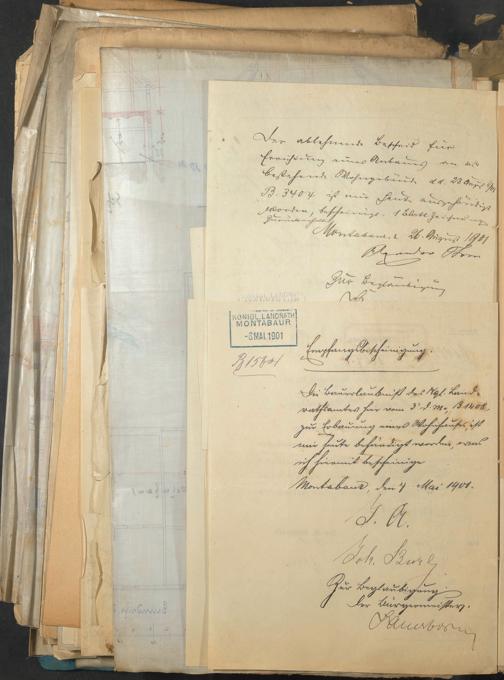 Der ablehnende Bescheid für
Errichtung eines Anbaues an das
bestehende Wohngebäude d.d. 23 Aug. 1901
B. 3404 ist mir heute ausgehändigt
worden, bescheinigt. 1 Blatt Zeichnung
zurückerhalten
Montabaur, 26. August 1901
Alexander
Zur Beglaubigung
KÖNIGL. LANDRATH
MONTABAUR
-6 MAI.1901
Empfangsbescheinigung.
Die Bauerlaubniß des Kgl. Land-
rathsamtes hier vom 3. d. M. B 1406
zur Erbauung eines Wohnhauses, ist
mir heute behändigt worden, was
ich hiermit bescheinige
Montabaur, den 4 Mai 1901.
J. A.
Joh.
Zur Beglaubigung
Der Bürgermeister.